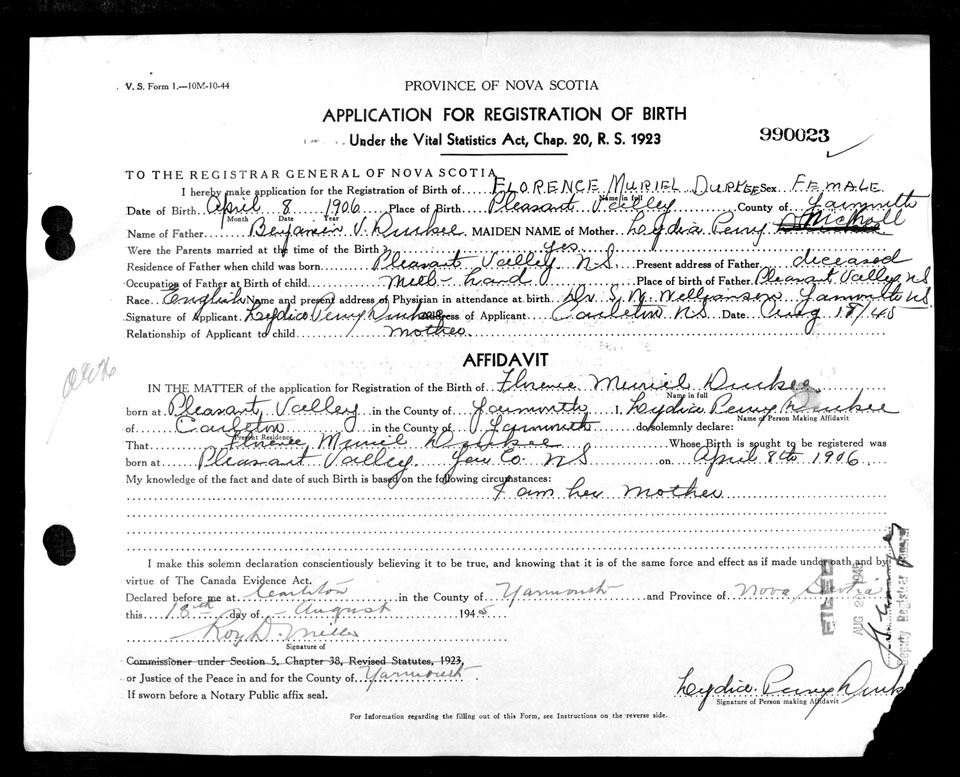 V. S. Form 1.—10M-10-44
PROVINCE OF NOVA SCOTIA
APPLICATION FOR REGISTRATION OF BIRTH
Under the Vital Statistics Act, Chap. 20, R. S. 1923
990023
TO THE REGISTRAR GENERAL OF NOVA SCOTIA
I hereby make application for the Registration of Birth of FLORENCE MURIEL DURKEE Sex FEMALE
Name in full
Date of Birth April 8 1906 Place of Birth Pleasant Valley County of Yarmouth
Month Date Year
Name of Father Benjamin V. Durkee MAIDEN NAME of Mother Lydia Perry Nickoll
Were the Parents married at the time of Birth? yes
Residence of Father when child was born Pleasant Valley N S Present address of Father diceased
Occupation of Father at Birth of child Mill-hand Place of birth of Father Pleasant Valley N S
Race English Name and present address of Physician in attendance at birth Dr S. W. Williamson Yarmouth N S
Signature of Applicant Lydia Perry Durkee Address of Applicant Carleton N S Date Aug 18/45
Relationship of Applicant to child mother
AFFIDAVIT
IN THE MATTER of the application for Registration of the Birth of Florence Muriel Durkee
Name in full
born at Pleasant Valley in the County of Yarmouth I, Lydia Perry Durkee
Name of Person Making Affidavit
of Carleton in the County of Yarmouth do solemnly declare:
Present Residence
That Florence Muriel Durkee Whose Birth is sought to be registered was
born at Pleasant Valley. Yar Co. N S on April 8th 1906
My knowledge of the fact and date of such Birth is based on the following circumstances:
I am her mother
I make this solemn declaration conscientiously believing it to be true, and knowing that it is of the same force and effect as if made under oath and by
virtue of The Canada Evidence Act.
Declared before me at Carleton in the County of Yarmouth and Province of Nova Scotia
this 18th day of August 1945
Roy D. Miller
Signature of
Commissioner under Section 5, Chapter 38, Revised Statutes, 1923,
or Justice of the Peace in and for the County of Yarmouth
If sworn before a Notary Public affix seal.
FILED
AUG 1945
Deputy Registrar General
Lydia Perry Durk
Signature of Person making Affidavit
For Information regarding the filling out of this Form, see Instructions on the reverse side.